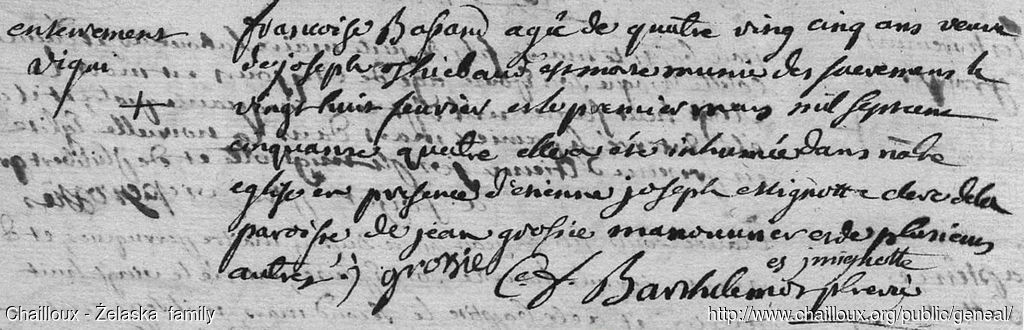 enterrement
francoise Basand agée de quatre ving cinq ans veuve
de joseph thiebaud est morte munie des sacremens le
vingt huit fevrier et le premier mars mil sept cent
cinquante quatre elle a été inhumée dans nôtre
eglise en presence d'etienne joseph clerc de la
paroisse de jean grosrie manouvrier et de plusieurs
autres
Chailloux - Żelaska family
http://www.chailloux.org/public/geneal/